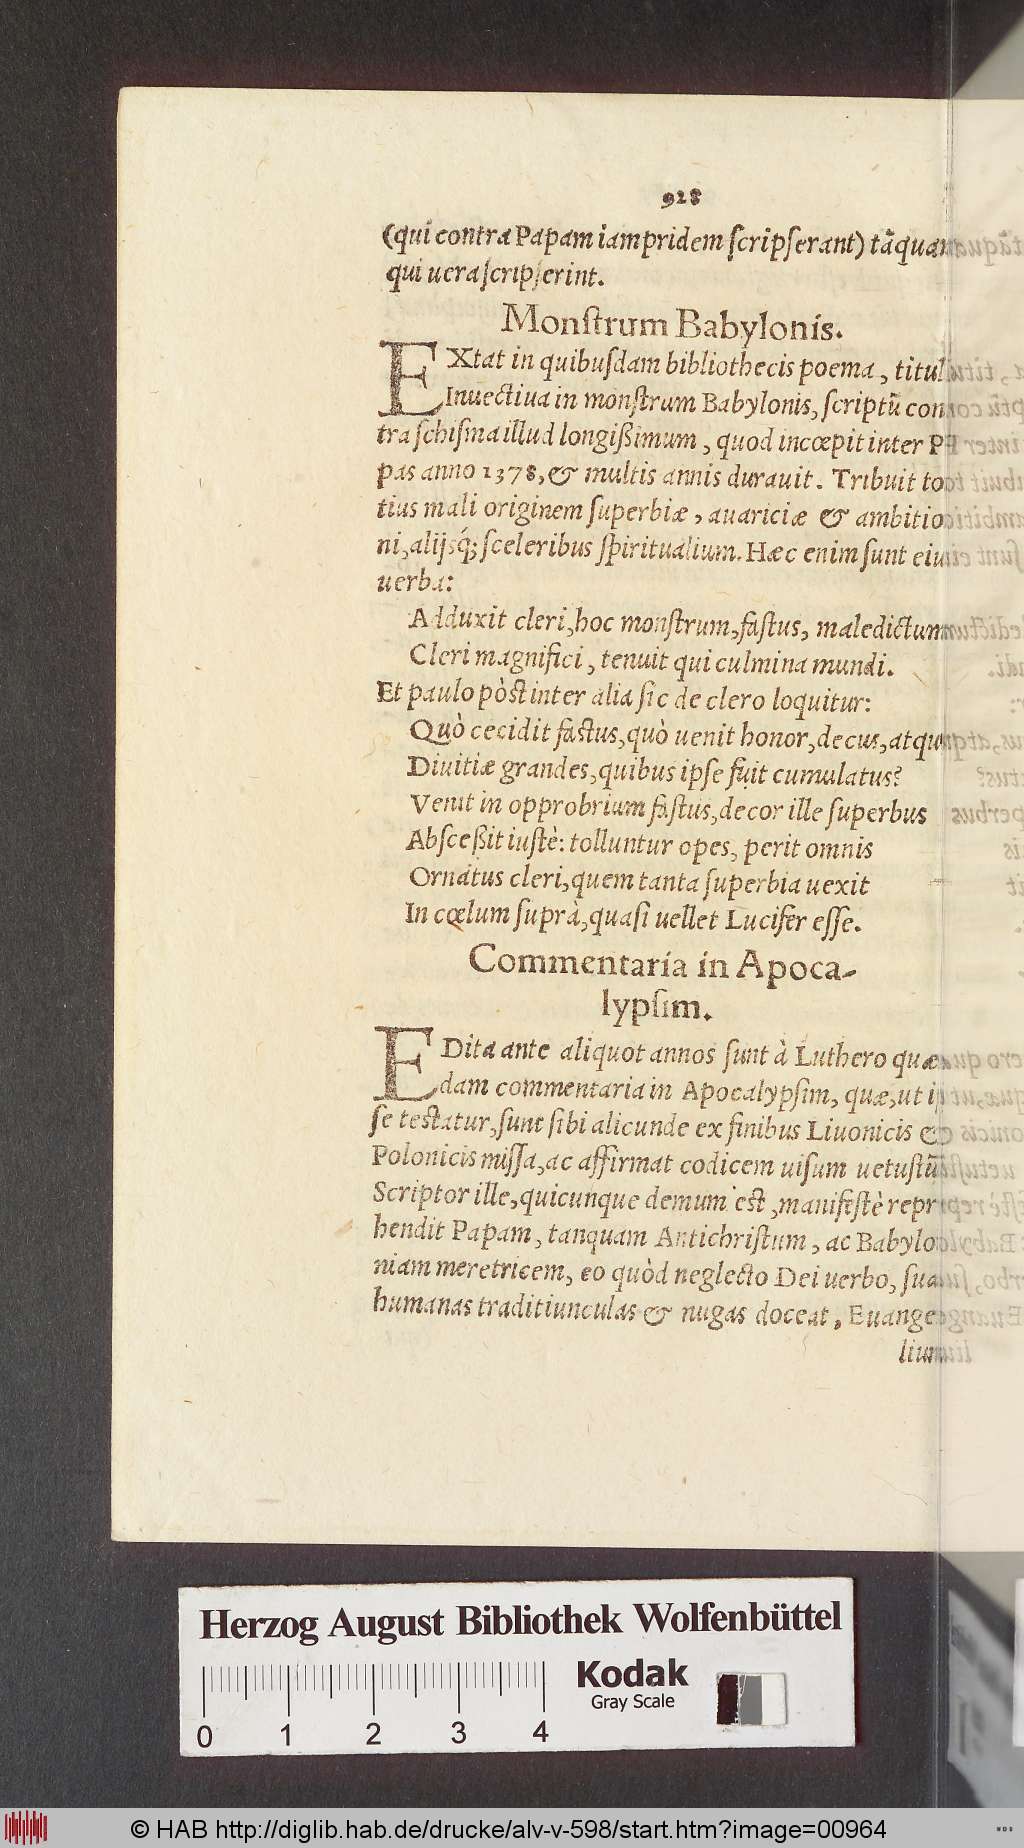 928
(qui contra Papam iampridem ſcripſerant) tãquam
qui uera ſcripſerint.
Monſtrum Babylonis.
EXtat in quibuſdam bibliothecis poema, titulo
Inuectiua in monſtrum Babylonis, ſcriptũ con
tra ſchiſma illud longißimum, quod incœpit inter Pa
pas anno 1378, & multis annis durauit. Tribuit to
tius mali originem ſuperbiæ, auariciæ & ambitio
ni, alijsq́; ſceleribus ſpiritualium. Hæc enim ſunt eius
uerba:
Adduxit cleri, hoc monſtrum, faſtus, maledictum
Cleri magnifici, tenuit qui culmina mundi.
Et paulo pòst inter alia ſic de clero loquitur:
Quò cecidit faſtus, quò uenit honor, decus, atque
Diuitiæ grandes, quibus ipſe fuit cumulatus?
Venit in opprobrium faſtus, decor ille ſuperbus
Abſceßit iuſtè: tolluntur opes, perit omnis
Ornatus cleri, quem tanta ſuperbia uexit
In cœlum ſuprà, quaſi uellet Lucifer eſſe.
Commentaria in Apoca-
lypſim.
EDita ante aliquot annos ſunt à Luthero quæ
dam commentaria in Apocalypſim, quæ, ut ip
ſe testatur, ſunt ſibi alicunde ex finibus Liuonicis &
Polonicis miſſa, ac affirmat codicem uiſum uetuſtũ.
Scriptor ille, quicunque demum est, manifeſtè repre
hendit Papam, tanquam Antichriſtum, ac Babylo
niam meretricem, eo quòd neglecto Dei uerbo, ſuas
humanas traditiunculas & nugas doceat, Euange
lium
Herzog August Bibliothek Wolfenbüttel
Kodak
Gray Scale
0 1 2 3 4
© HAB http://diglib.hab.de/drucke/alv-v-598/start.htm?image=00964